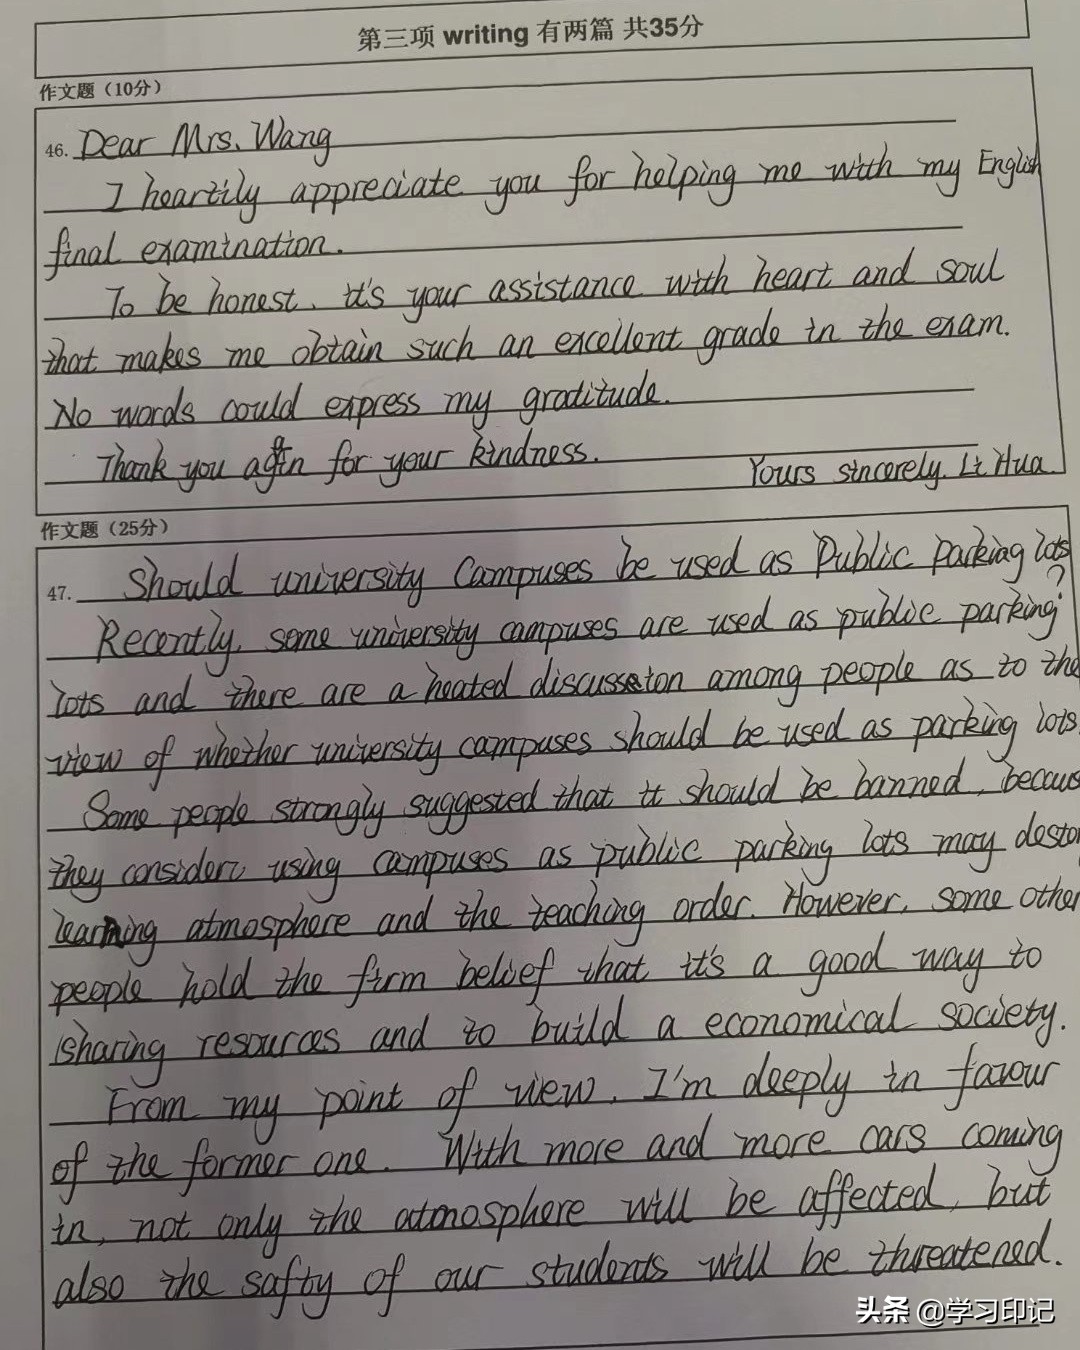 第三项 writing 有两篇 共35分
作文题（10分）
46. Dear Mrs. Wang
I heartily appreciate you for helping me with my English
final examination.
To be honest, it's your assistance with heart and soul
that makes me obtain such an excellent grade in the exam.
No words could express my gratitude.
Thank you again for your kindness.
Yours sincerely, Li Hua.
作文题（25分）
47. Should university Campuses be used as Public Parking lots
?
Recently, some university campuses are used as public parking
lots and there are a heated discussion among people as to the
view of whether university campuses should be used as parking lots.
Some people strongly suggested that it should be banned, becaus
they consider using campuses as public parking lots may destor
learning atmosphere and the teaching order. However, some other
people hold the firm belief that it's a good way to
sharing resources and to build a economical society.
From my point of view, I'm deeply in favour
of the former one. With more and more cars coming
in, not only the atmosphere will be affected, but
also the safty of our students will be threatened.
头条 @学习印记